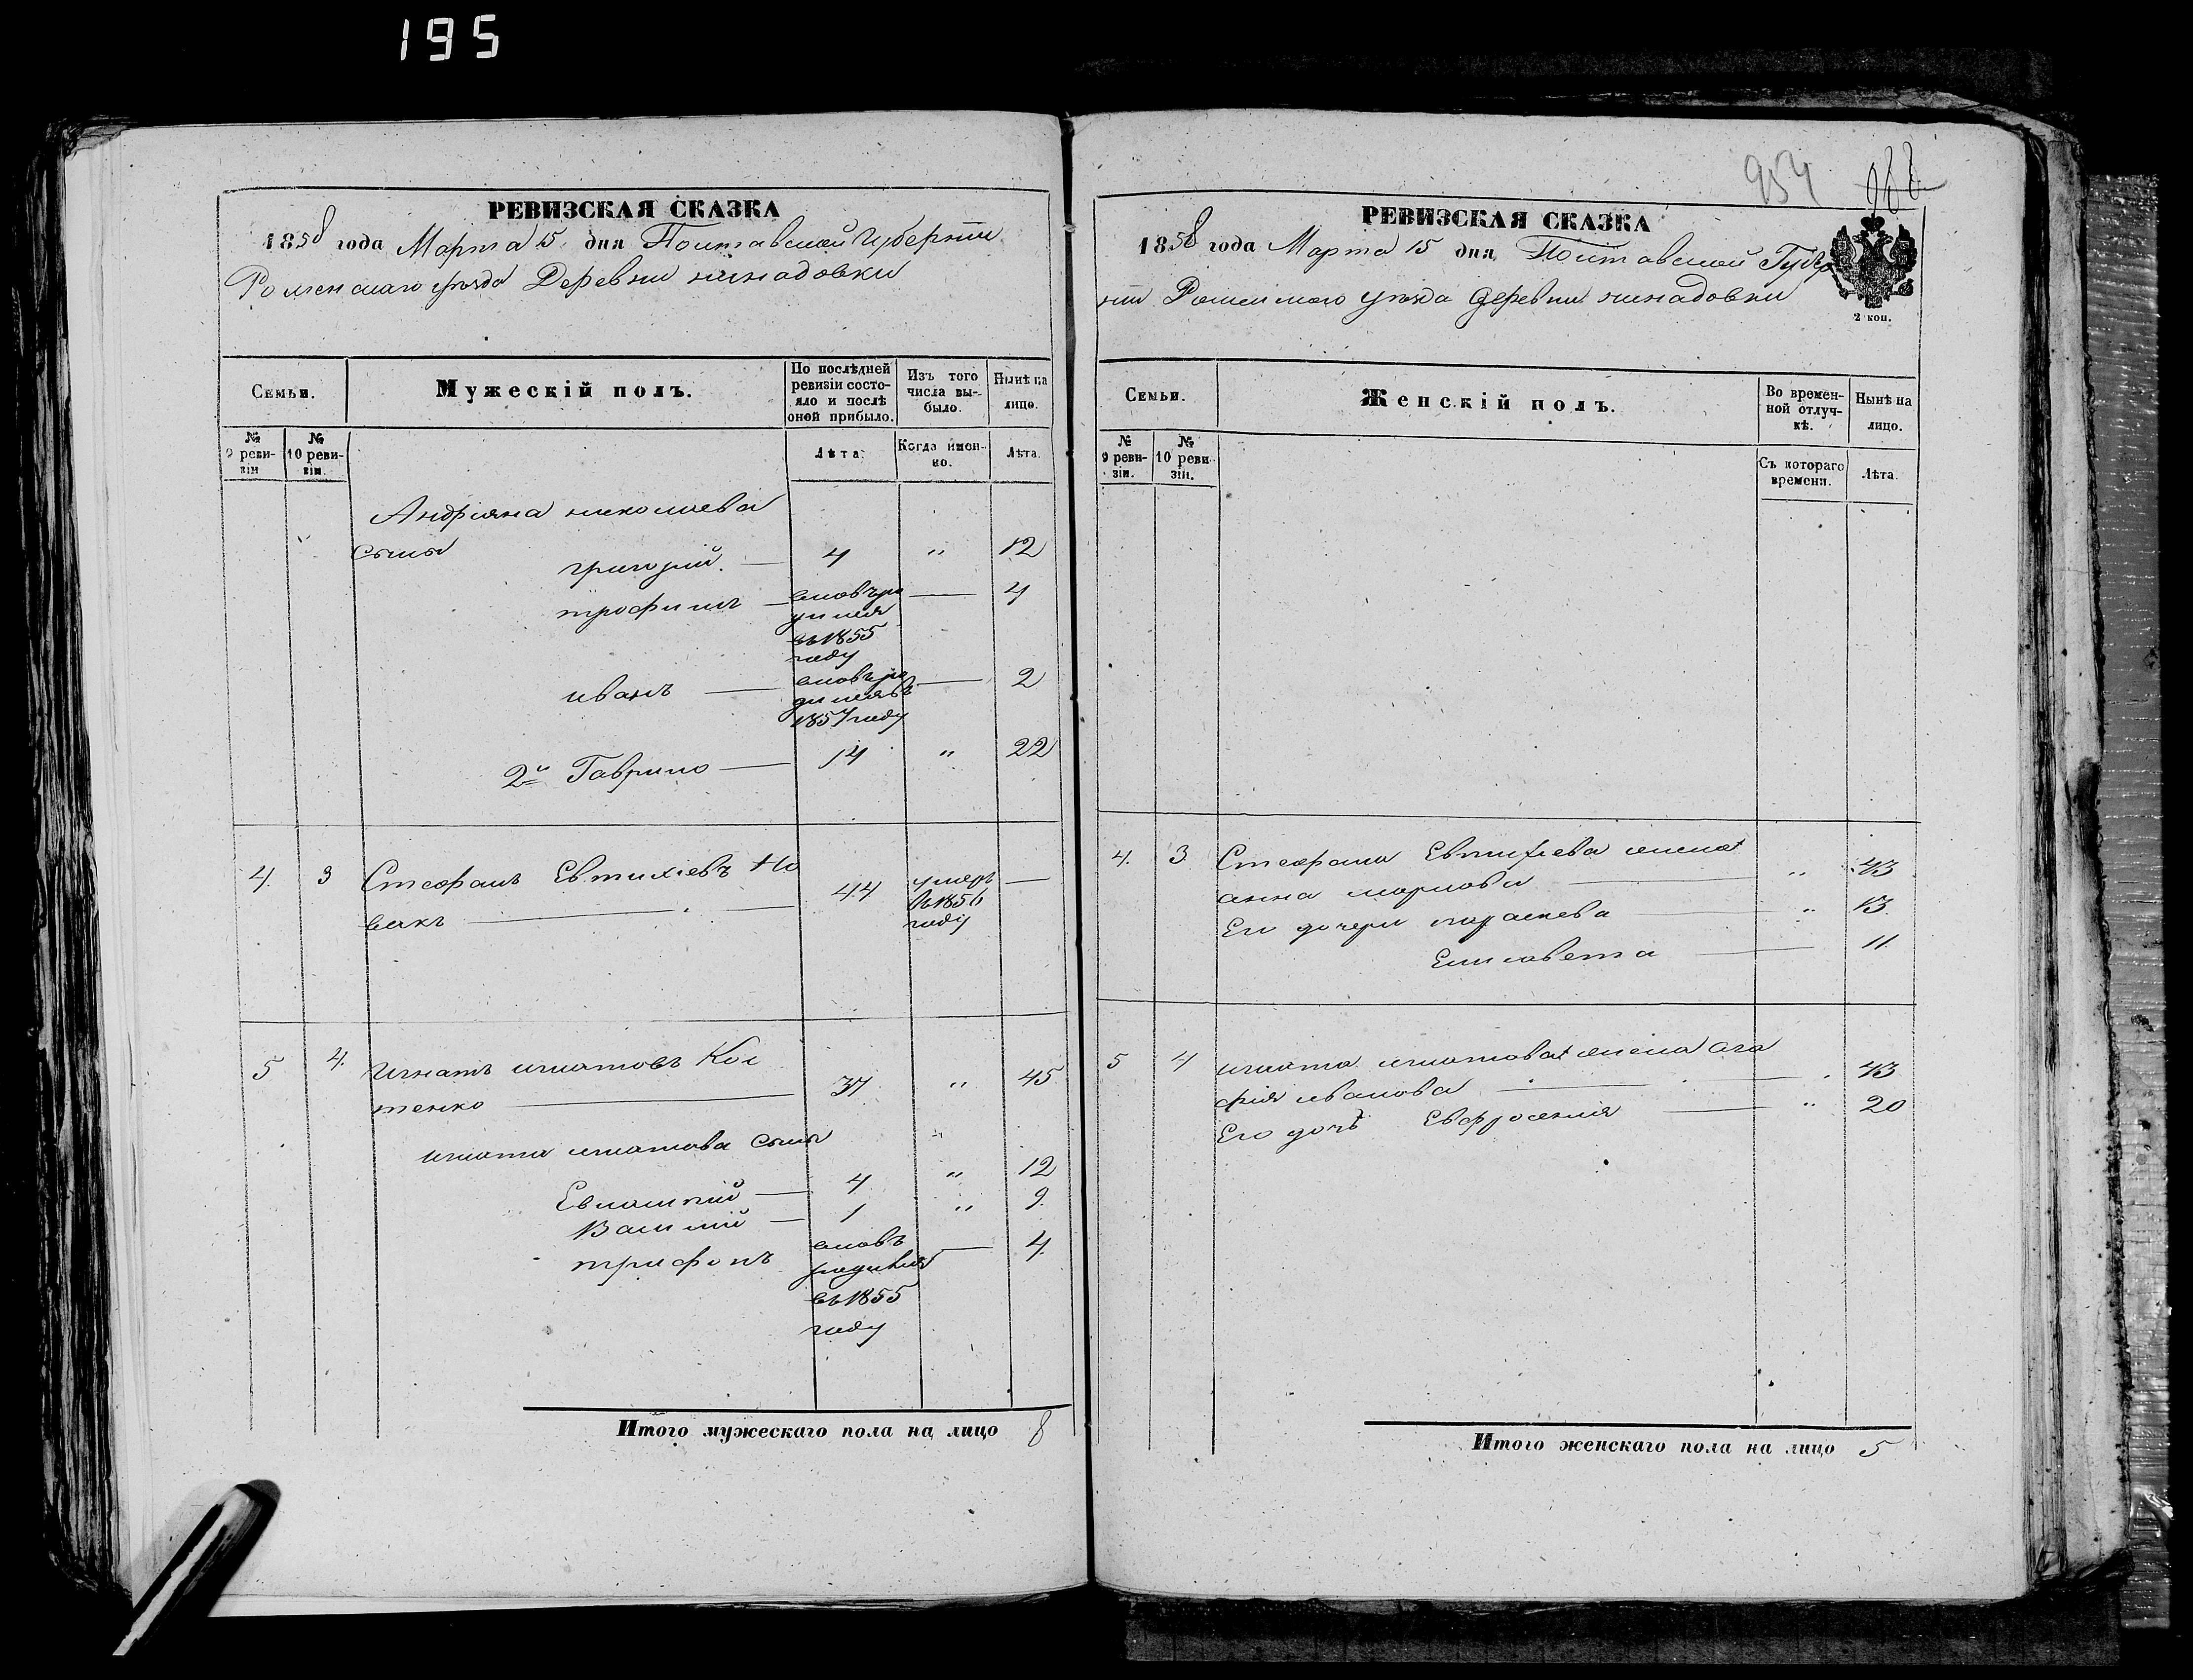 195
РЕВИЗСКАЯ СКАЗКА
1858 года Марта 15 дня Полтавской Губерніи
Роменскаго уѣзда Деревни
Семьи.
Мужескій полъ.
По послѣдней ревизіи состояло и послѣ оной прибыло.
Изъ того числа выбыло.
Нынѣ на лицо.
№ 9 ревизіи
№ 10 ревизіи.
Лѣта.
Когда именно.
Лѣта.
Андріяна николаева
сыны
григорій. — 4 " 12
трофимъ — вновь ро — 4
дился
въ 1855
году
иванъ — вновь ро — 2
дился въ
1857 году
2й Гаврило — 14 " 22
4. 3 Стефанъ Евтихіевъ Но 44 умеръ —
вакъ — въ 1856
году
5 4. Игнатъ игнатовъ Кос 37 " 45
тенко
игната игнатова сыны "
Евлампій — 4 " 12
Василій — 1 " 9.
трифонъ вновь — 4
родился
въ 1855
году
Итого мужескаго пола на лицо 8
954
РЕВИЗСКАЯ СКАЗКА
1858 года Марта 15 дня Полтавской Губер
ніи Роменскаго уѣзда деревни
2 коп.
Семьи.
Женскій полъ.
Во временной отлучкѣ.
Нынѣ на лицо.
№ 9 ревизіи.
№ 10 ревизіи.
Съ котораго времени.
Лѣта.
4. 3 Стефана Евтихіева жена
анна маркова — " 43
Его дочери параскева — " 13.
Елисавета — 11.
5 4 игната игнатова жена ага
фія иванова — " 43
Его дочь Евфросенія — " 20
Итого женскаго пола на лицо 5